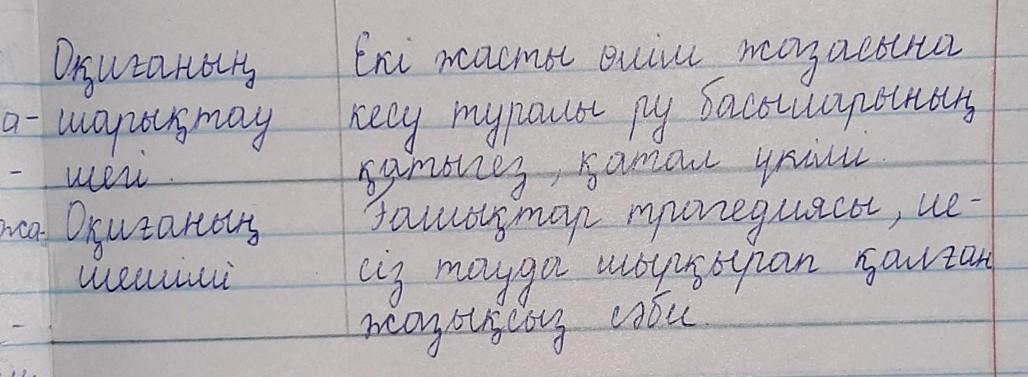 Оқиғаның Екі жасты өлім жазасына
а- шарықтау кесу туралы ру басыларының
- шегі. қатыгез, қатал үкімі.
жа- Оқиғаның Ғашықтар трагедиясы, ие-
шешімі сіз тауда шырқырап қалған
- жазықсыз сәби.